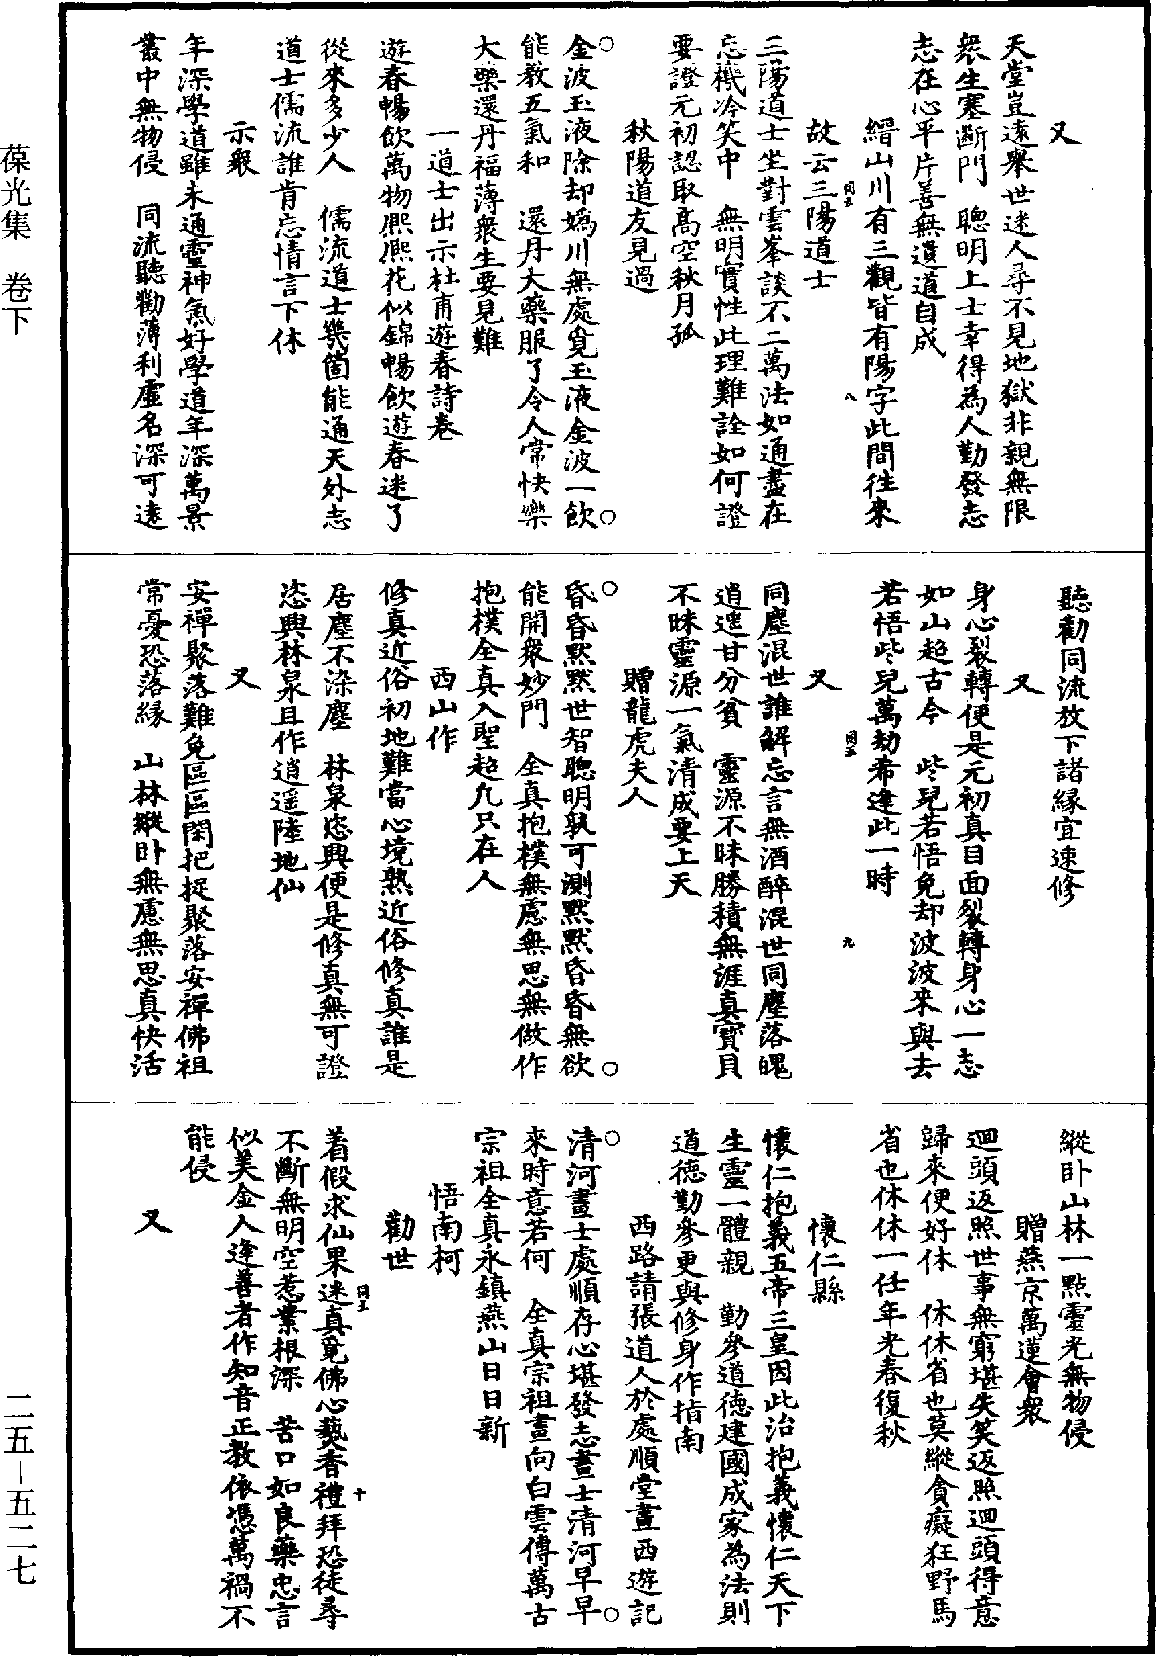 又
天堂豈遠舉世迷人尋不見地獄非親無限
衆生塞斷門　聰明上士幸得為人勤發志
志在心平片善無遺道自成
縉山川有三觀皆有陽字此間往來
故云三陽道士
三陽道士坐對雲峯談不二萬法如通盡在
忘機冷笑中　無明實性此理難詮如何證
要證元初認取高空秋月孤
秋陽道友見過
金波玉液除却嬀川無處覓玉液金波一飲
能教五氣和　還丹大藥服了令人常快樂
大藥還丹福薄衆生要見難
一道士出示杜甫遊春詩卷
遊春暢飲萬物熈熈花似錦暢飲遊春迷了
從來多少人　儒流道士幾箇能通天外志
道士儒流誰肯忘情言下休
示衆
年深學道雖未通靈神氣好學道年深萬景
叢中無物侵　同流聽勸薄利虛名深可遠
聽勸同流放下諸緣宜速修
又
身心裂轉便是元初真目面裂轉身心一志
如山超古今　些兒若悟免却波波來與去
若悟些兒萬劫希逢此一時
又
同塵混世誰解忘言無酒醉混世同塵落魄
逍遙甘分貧　靈源不昧勝積無涯真寶貝
不昧靈源一氣清成要上天
贈龍虎夫人
昏昏默默世智聰明孰可測默默昏昏無欲
能開衆妙門　全真抱樸無慮無思無做作
抱樸全真入聖超凡只在人
西山作
修真近俗初地難當心境熟近俗修真誰是
居塵不染塵　林泉恣興便是修真無可證
恣興林泉且作逍遥陸地仙
又
安禪聚落難免區區閑把捉聚落安禪佛祖
常憂恐落緣　山林縱卧無慮無思真快活
縱卧山林一點靈光無物侵
贈燕京萬蓮會衆
迴頭返照世事無窮堪失笑返照迴頭得意
歸來便好休　休休省也莫縱貪癡狂野馬
省也休休一任年光春復秋
懷仁縣
懷仁抱義五帝三皇因此治抱義懷仁天下
生靈一體親　勤參道德建國成家為法則
道德勤參更與修身作指南
西路請張道人於處順堂畫西遊記
清河畫士處順存心堪發志畫士清河早早
來時意若何　全真宗祖畫向白雲傳萬古
宗祖全真永鎮燕山日日新
悟南柯
勸世
着假求仙果迷真覓佛心爇香禮拜恐徒尋
不斷無明空惹業根深　苦口如良藥忠言
似美金人逢善者作知音正教依憑萬禍不
能侵
又
葆光集　卷下
二五－五二七